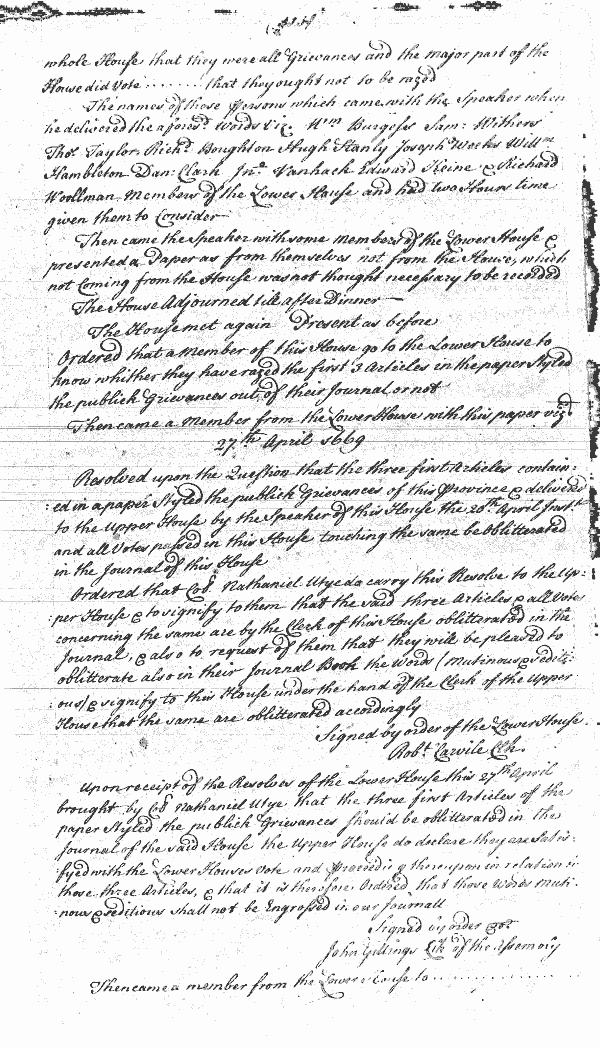 whole House that they were all Grievances and the major part of the
House did Vote ........ that they ought not to be razed
The names of those Persons which came with the Speaker when
he delivered the aforesd. Words Viz. Wm Burgess Sam: Withers
Tho: Taylor, Richd. Boughton Hugh Stanly Joseph Weeks Willm
Hambleton Dan: Clark Jno. Vanhack Edward Keine & Richard
Woollman Members of the Lower House and had two Hours time
given them to Consider
Then came the Speaker with some members of the Lower House &
presented a Paper as from themselves not from the House, which
not Coming from the House was not thought necessary to be recorded
The House Adjourned till after Dinner —
The House met again Present as before
Ordered that a Member of this House go to the Lower House to
know whether they have razed the first 3 Articles in the paper Styled
the publick Grievances out of their Journal or not
Then came a Member from the Lower House with this paper vizd
27th April 1669
Resolved upon the Question that the three first Articles contain:
:ed in a paper Styled the publick Grievances of this Province & delivered
to the Upper House by the Speaker of this House the 20th April Inst.t
and all Votes passed in this House touching the same be Obliterated
in the Journal of this House
Ordered that Coll. Nathaniel Utye do carry this Resolve to the Up:
:per House & to signify to them that the said three Articles & all Votes
concerning the same are by the Clerk of this House obliterated in the
Journal, & also to request of them that they will be pleased to
obliterate also in their Journal Book the Words (Mutinous & sediti:
:ous) & signify to this House under the hand of the Clerk of the Upper
House that the same are oblitterated accordingly
Signed by order of the Lower House
Robt. Carvile Clk.
Upon receipt of the Resolves of the Lower House this 27th April
brought by Coll Nathaniel Utye that the three first Articles of the
paper Styled the publick Grievances should be oblitterated in the
Journal of the said House the Upper House do declare they are Satis:
:fyed with the Lower Houses Vote and Proceeding thereupon in relation to
those three Articles, & that it is therefore Ordered that those Words Muti:
:nous & seditious shall not be Engrossed in our Journall
Signed by order &c.
John Gittings Clk of the Assembly
Then came a member from the Lower House to ..............